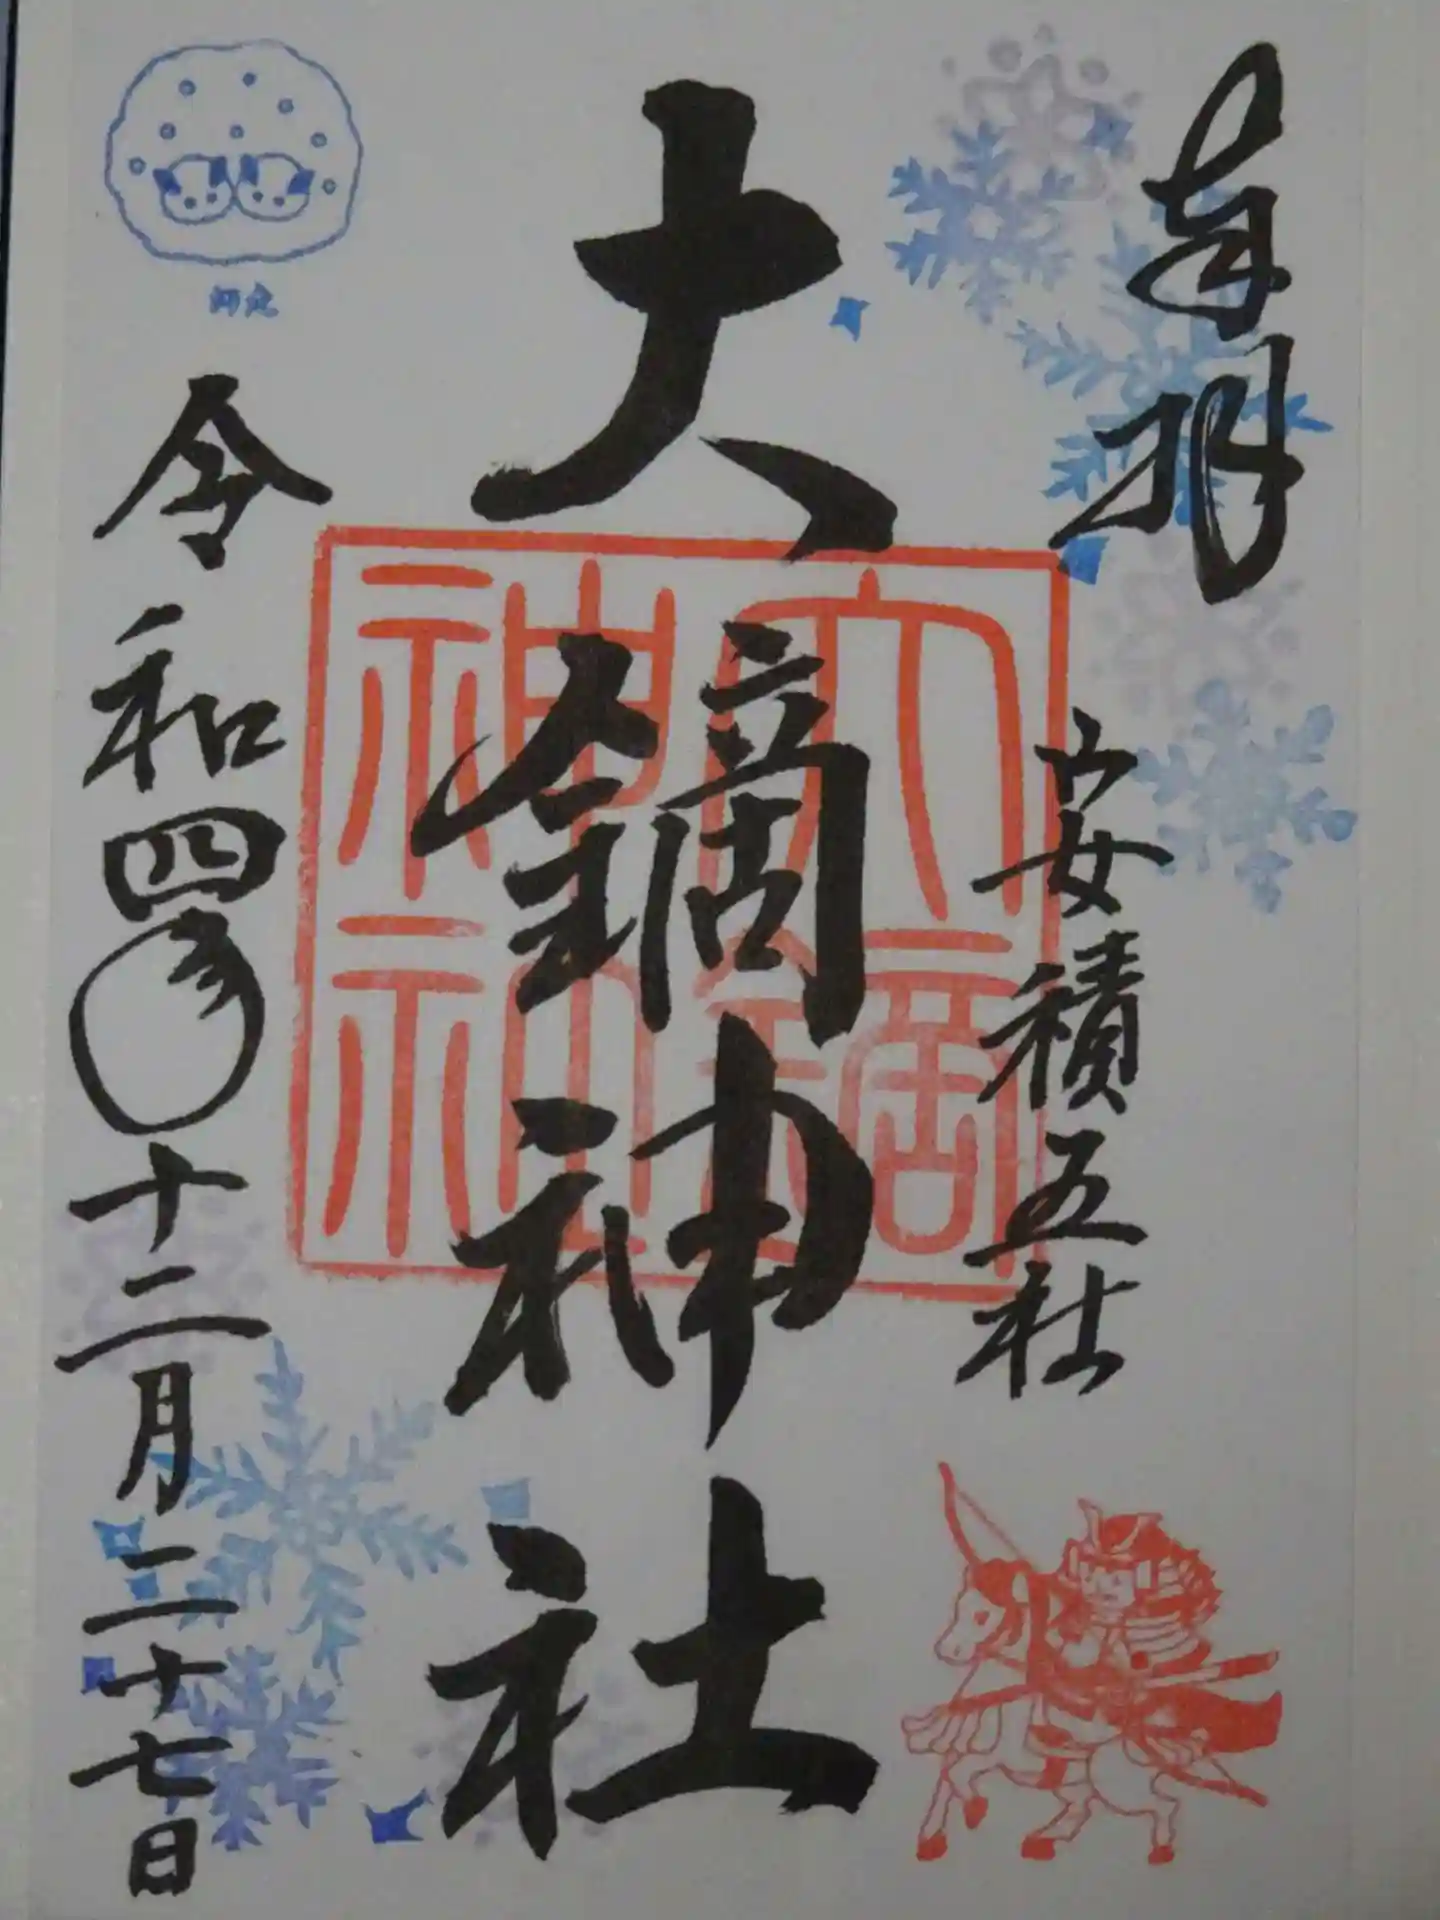 奉拝
安積五社
大鏑神社
大鏑神社
令和四年十二月二十七日
師走